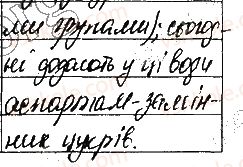 ми групами); сьогод-
ні додають у ці води
аспартам-замін-
ник цукрів.